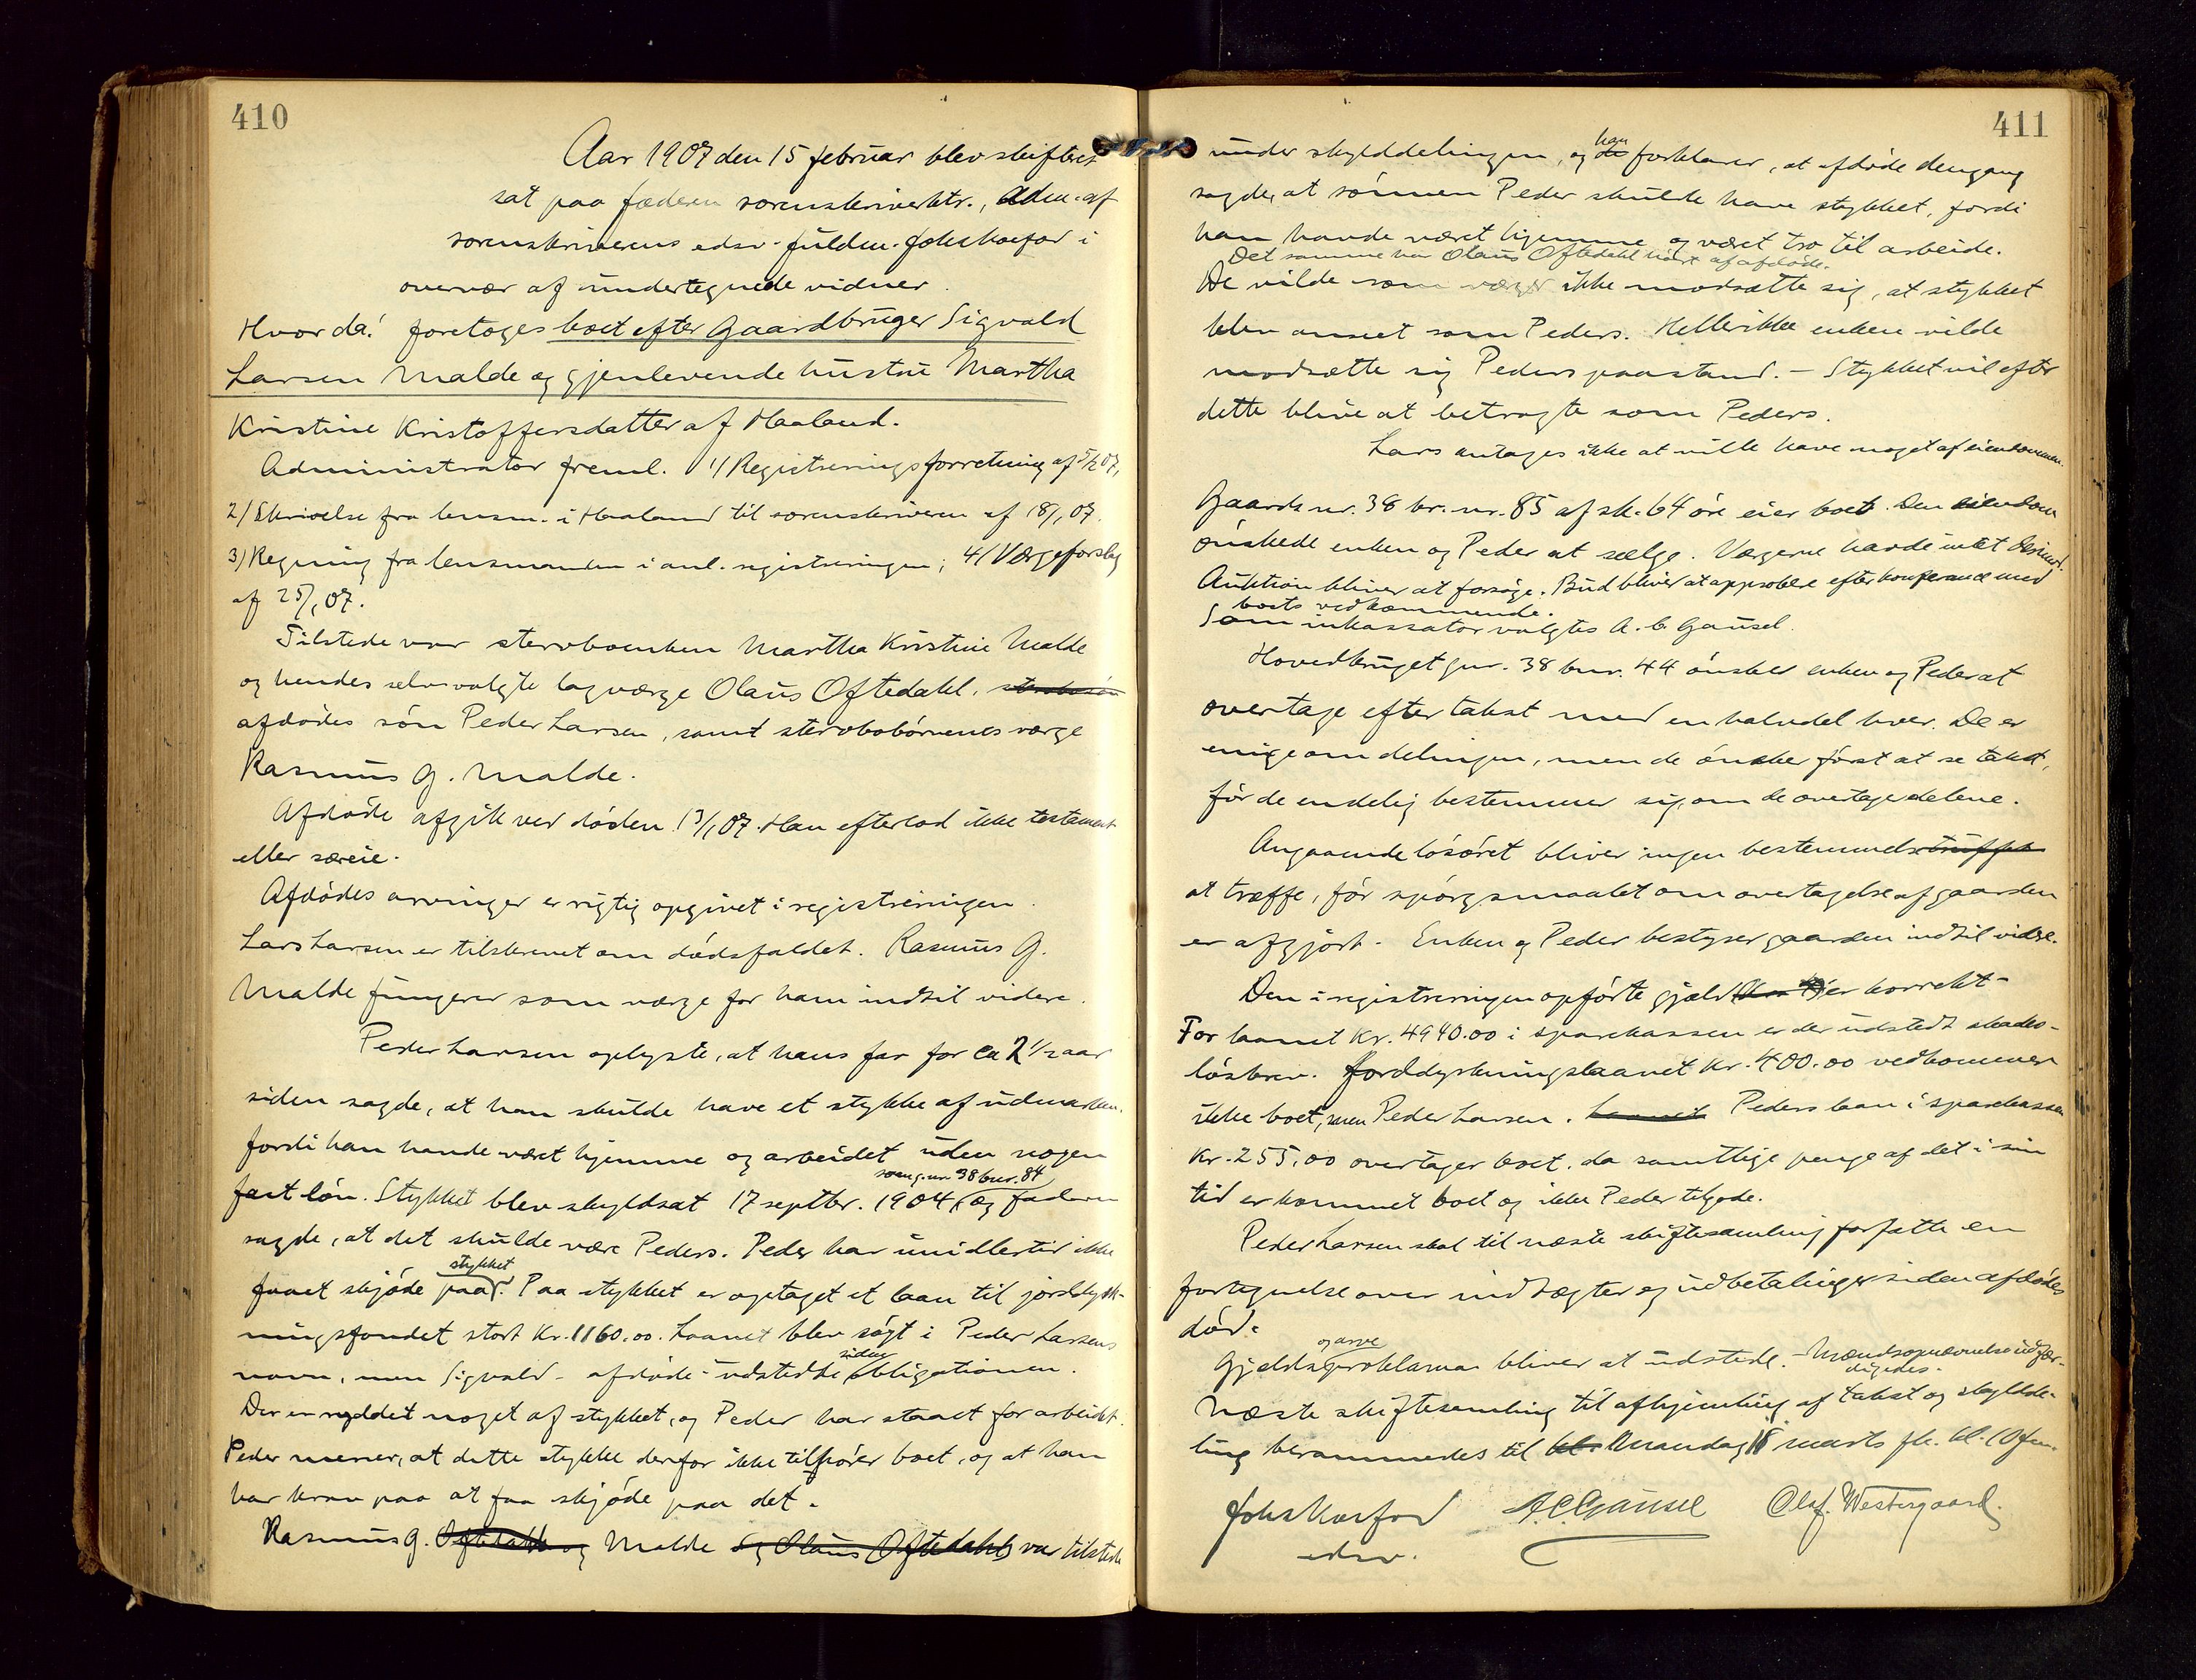 410
Aar 1907 den 15 februar blev skifteret
sat paa Jæderen sorenskriverktr., Adm. af
sorenskriverens edsv. fuldm. Johs Koefod i
overvær af undertegnede vidner.
Hvor da! foretoges boet efter Gaardbruger Sigvald
Larsen Malde og gjenlevende hustru Martha
Kristine Kristoffersdatter af Haaland.
Administrator freml. 1/ Registreringsforretning af 5/2 07,
2/ Skrivelse fra lensm. i Haaland til sorenskriveren af 18/1 07.
3) Regning fra lensmanden i anl. registreringen; 4/ Værgeforslag
af 25/1 07.
Tilstede var stervboenken Martha Kristine Malde
og hendes selvvalgte lagværge Olaus Oftedahl, stervbosøn
afdødes søn Peder Larsen, samt stervbobørnenes værge
Rasmus G. Malde.
Afdøde afgik ved døden 13/1 07. Han efterlod ikke testament
eller særeie.
Afdødes arvinger er rigtig opgivet i registreringen.
Lars Larsen er tilskrevet om dødsfaldet. Rasmus G.
Malde fungerer som værge for ham indtil videre.
Peder Larsen oplyste, at hans far for ca 2 1/2 aar
siden sagde, at han skulde have et stykke af udmarken,
fordi han havde været hjemme og arbeidet uden nogen
som g.nr 38 bnr. 84
fast løn. Stykket blev skyldsat 17 septbr. 1904 og faderen
sagde, at det skulde være Peders. Peder har imidlertid ikke
stykket
faaet skjøde paa. Paa stykket er optaget et laan til jorddyrk-
ningsfondet stort Kr. 1160.00. Laanet blev søgt i Peder Larsens
siden
navn, men Sigvald - afdøde - udstedte obligationen.
Der er ryddet noget af stykket, og Peder har staaet for arbeidet.
Peder mener, at dette stykke derfor ikke tilhører boet, og at han
har krav paa at faa skjøde paa det.
Rasmus G. Oftedahl og Malde og Olaus Oftedahl var tilstede
411
han
under skylddelingen, og de forklarer, at afdøde dengang
sagde, at sønnen Peder skulde have stykket, fordi
han havde været hjemme og været tro til arbeide.
Det samme har Olaus Oftedahl hørt af afdøde.
De vilde som værger ikke modsætte sig, at stykket
blev anseet som Peders. Heller ikke enken vilde
modsætte sig Peders paastand. - Stykket vil efter
dette blive at betragte som Peders.
Lars antages ikke at ville have noget af eiendommen.
Gaards nr. 38 br. nr. 85 af sk. 64 øre eier boet. Den eiendom
ønskede enken og Peder at sælge. Værgerne havde intet derimod.
Auktion bliver at forsøge. Bud bliver at approbere efter konferance med
boets vedkommende.
Som inkassator valgtes A. C. Gausel.
Hovedbruget gnr. 38 bnr. 44 ønsker enken og Peder at
overtage efter takst med en halvdel hver. De er
enige om delingen, men de ønsker først at se takst,
før de endelig bestemmer sig om de overtager delene.
Angaaende løsøret bliver ingen bestemmelse truffet
at træffe, før spørgsmaalet om overtagelse af gaarden
er afgjort. Enken og Peder bestyrer gaarden indtil videre.
Den i registreringen opførte gjæld er korrekt -
For laanet Kr. 4940.00 i sparekassen er der udstedt skades-
løsbrev. Jorddyrkningslaanet Kr. 400.00 vedkommer
ikke boet, men Peder Larsen. Laanet Peders laan i sparekassen
Kr. 255,00 overtager boet, da samtlige penge af det i sin
tid er kommet boet og ikke Peder tilgode.
Peder Larsen skal til næste skiftesamling forfatte en
fortegnelse over indtægter og udbetalinger siden afdødes
død.
og arve
Gjeldsproklama bliver at udstede. - Mændsopnævnelse udfær-
diges.
Næste skiftesamling til afhjemling af takst og skyldde-
ling berammedes til kl. Mandag 18 marts fk. kl. 10 fm.
Johs Koefod A. C. Gausel Olaf. Westergaard.
edsv.